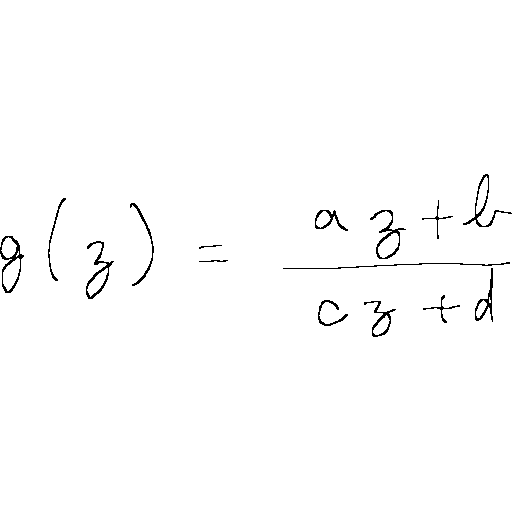 g(z) = \frac{az+b}{cz+d}